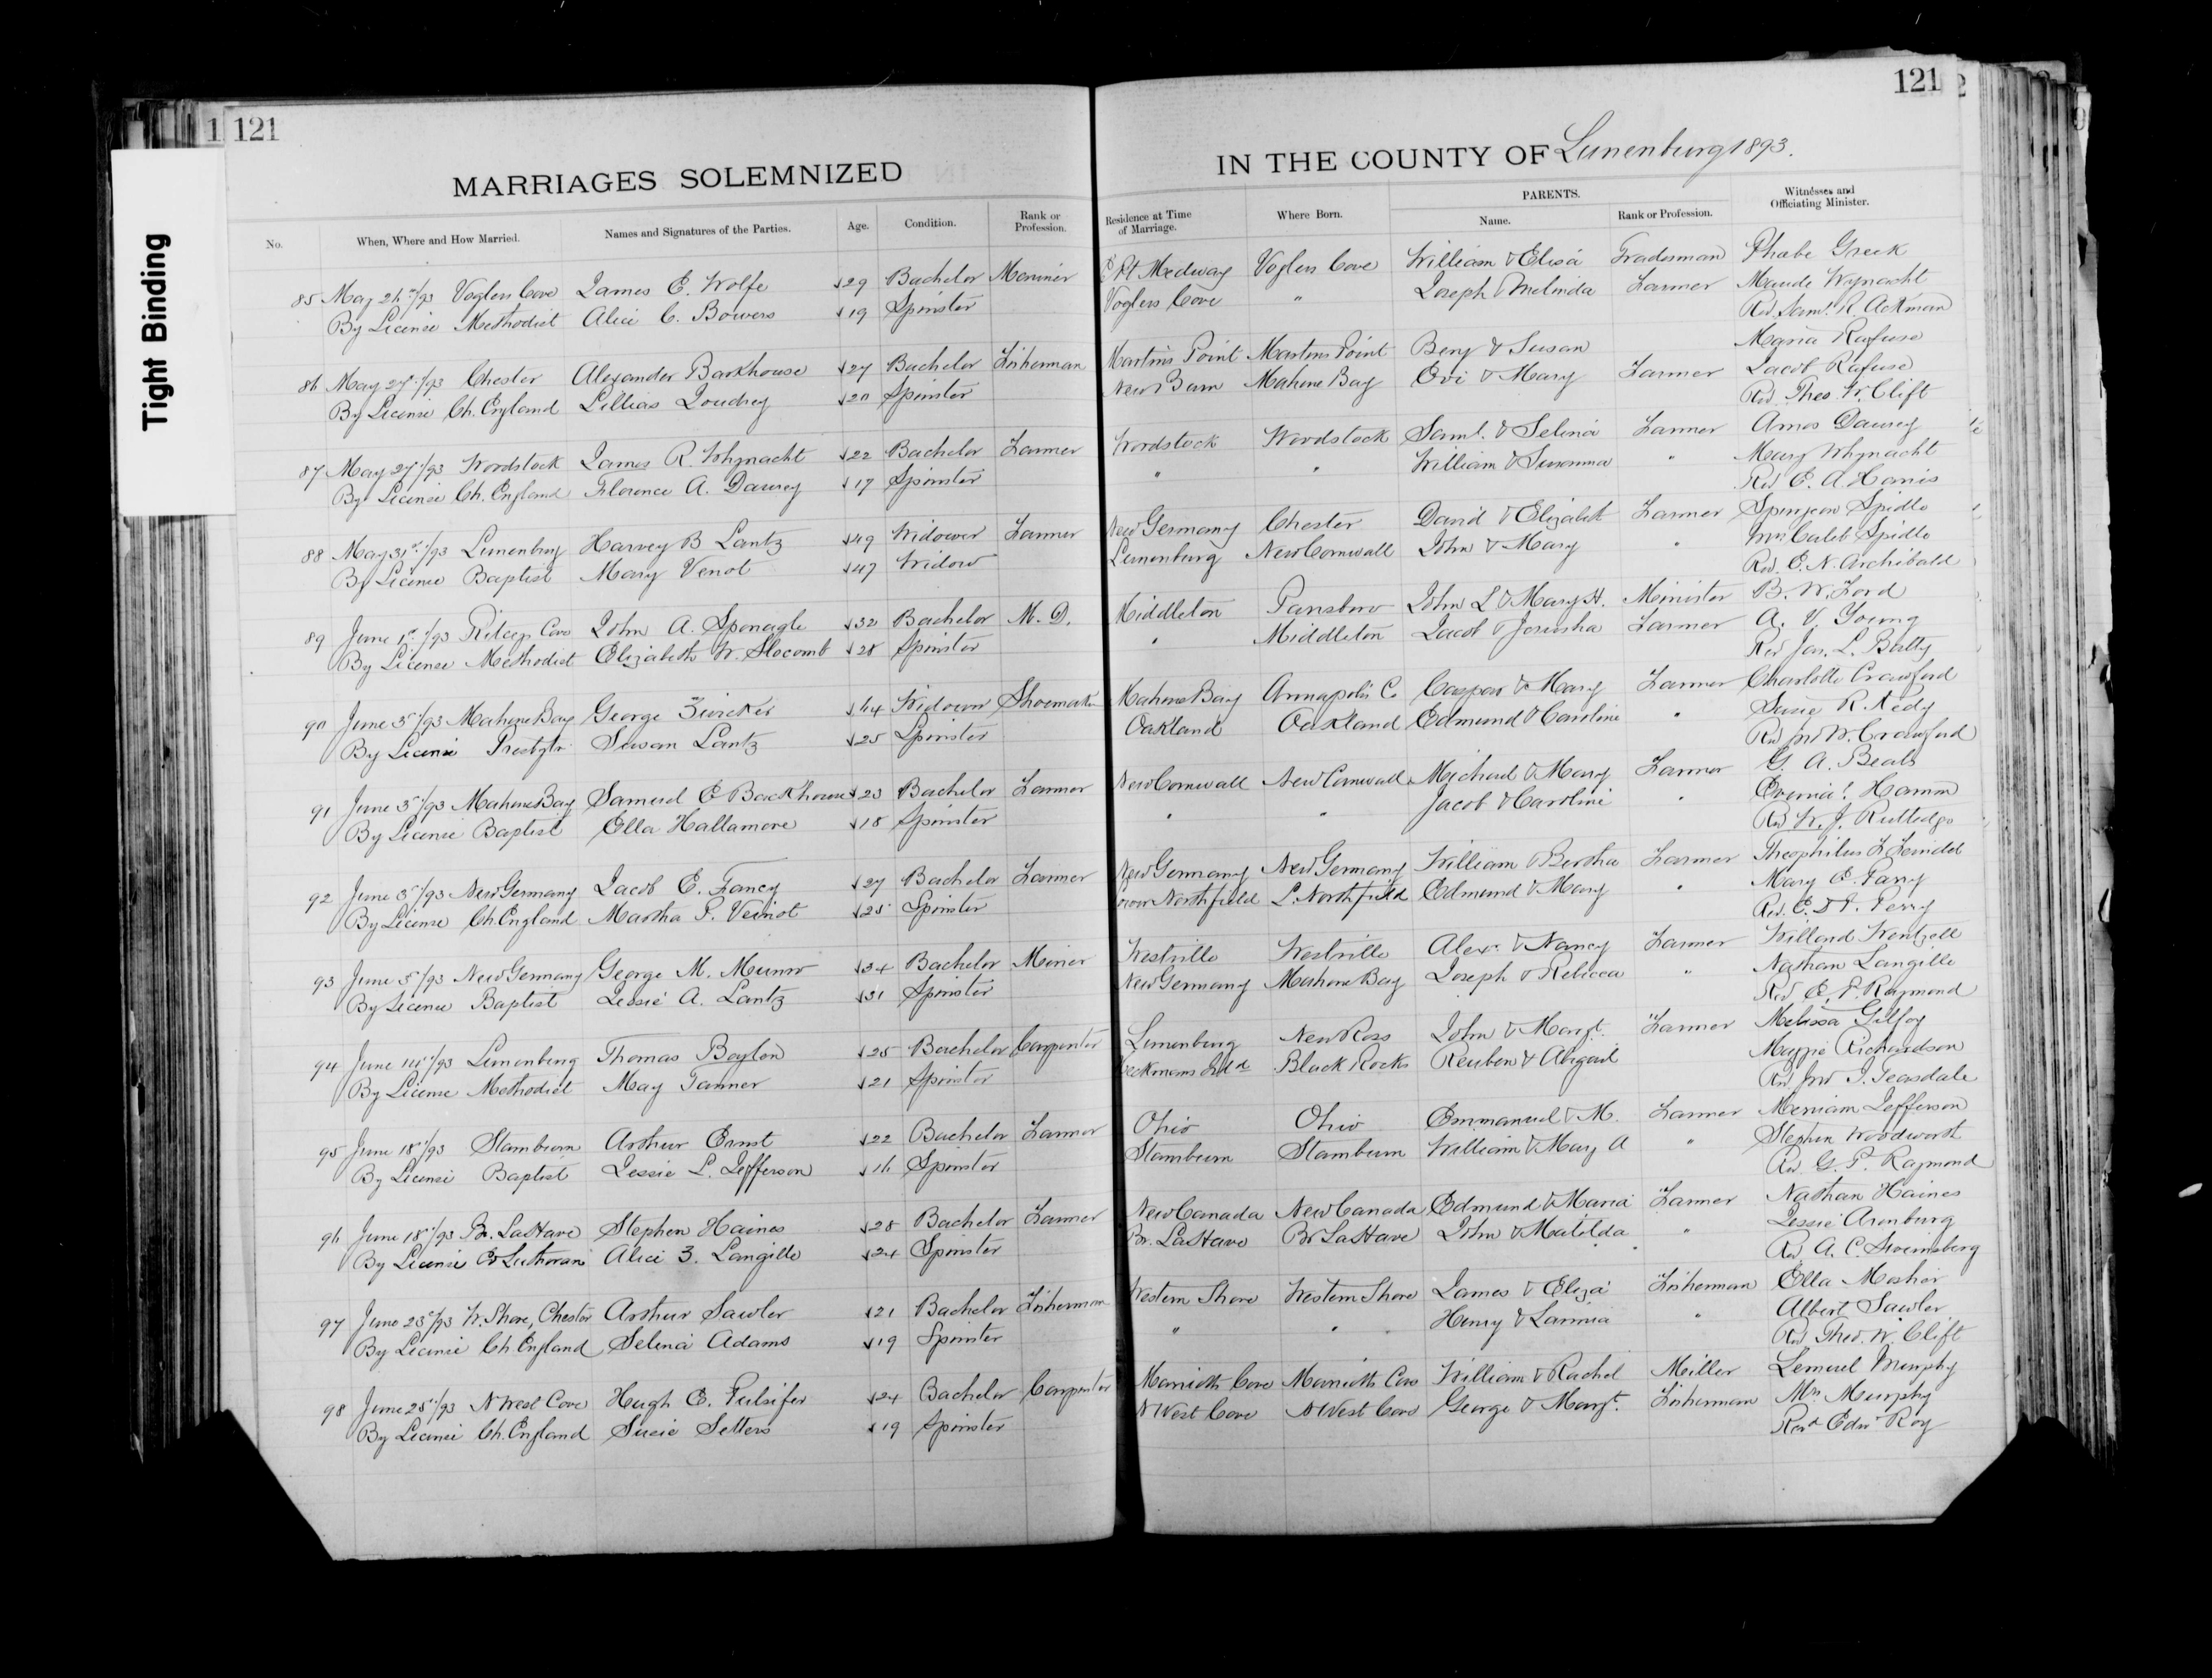 Tight Binding
1 121
121 2
MARRIAGES SOLEMNIZED IN THE COUNTY OF Lunenburg 1893.
No. When, Where and How Married. Names and Signatures of the Parties. Age. Condition. Rank or Profession. Residence at Time of Marriage. Where Born. PARENTS. Name. Rank or Profession. Witnesses and Officiating Minister.
85 May 26/93 Voglers Cove James E. Wolfe 29 Bachelor Mariner Pt Medway Voglers Cove William & Eliza Tradesman Phœbe Greek
By License Methodist Alice C. Bowers 19 Spinster Voglers Cove " Joseph & Melinda Farmer Maude Wynacht
Rev. Saml. R. Ackman
86 May 27/93 Chester Alexander Barkhouse 27 Bachelor Fisherman Martins Point Martins Point Benj & Susan Maria Rafuse
By License Ch. England Lillias Joudrey 20 Spinster New Burn Mahone Bay Ovi & Mary Farmer Jacob Rafuse
Rev. Theo. W. Clift
87 May 27/93 Woodstock James R. Whynacht 22 Bachelor Farmer Woodstock Woodstock Saml. & Selina Farmer Amos Daurey
By License Ch. England Florence A. Daurey 17 Spinster " " William & Susanna " Mary Whynacht
Rev E. A. Harris
88 May 31st/93 Lunenburg Harvey B Lantz 49 Widower Farmer New Germany Chester David & Elizabeth Farmer Spurgeon Spidle
By License Baptist Mary Venot 47 Widow Lunenburg New Cornwall John & Mary " Mrs Caleb Spidle
Rev. E. N. Archibald
89 June 1st/93 Ritcey Cove John A. Sponagle 32 Bachelor M. D. Middleton Parrsboro John L & Mary H. Minister B. W. Ford
By License Methodist Elizabeth W. Slocomb 28 Spinster " Middleton Jacob & Jerusha Farmer A. V. Young
Rev Jos. L. Batty
90 June 3/93 Mahone Bay George Zwicker 64 Widower Shoemaker Mahone Bay Annapolis Co Caspar & Mary Farmer Charlotte Crawford
By License Presbytr Susan Lantz 25 Spinster Oakland Oakland Edmund & Caroline " Susie R. Kedy
Rev Jno W. Crawford
91 June 3/93 Mahone Bay Samuel E Barkhouse 23 Bachelor Farmer New Cornwall New Cornwall Michael & Mary Farmer G. A. Beals
By License Baptist Ella Hallamore 18 Spinster " " Jacob & Caroline " Hamm
Rev W. J. Rutledge
92 June 3/93 New Germany Jacob E. Fancy 27 Bachelor Farmer New Germany New Germany William & Bertha Farmer Theophilus
By License Ch. England Martha S. Veinot 25 Spinster Lower Northfield L. Northfield Edmund & Mary " Mary E. Parry
Rev. E. D. P. Parry
93 June 5/93 New Germany George M. Munro 34 Bachelor Miner Westville Westville Alex. & Nancy Farmer Willard Wentzell
By License Baptist Jessie A. Lantz 31 Spinster New Germany Mahone Bay Joseph & Rebecca " Nathan Langille
Rev P. Raymond
94 June 14/93 Lunenburg Thomas Boylen 25 Bachelor Carpenter Lunenburg New Ross John & Margt. Farmer Melissa Gilfoy
By License Methodist May Tanner 21 Spinster Heckmans Isld Black Rocks Reuben & Abigail Maggie Richardson
Rev. Jno J. Teasdale
95 June 18/93 Stanburn Arthur Ernst 22 Bachelor Farmer Ohio Ohio Emmanuel & M. Farmer Merriam Jefferson
By License Baptist Jessie L. Jefferson 16 Spinster Stanburn Stanburn William & Mary A " Stephen Woodworth
Rev G. P. Raymond
96 June 18/93 Br. LaHave Stephen Haines 28 Bachelor Farmer New Canada New Canada Edmund & Maria Farmer Nathan Haines
By License Ev Lutheran Alice Z. Langille 24 Spinster Br. LaHave Br LaHave John & Matilda " Jessie Arenburg
Rev A. C. Sweinsberg
97 June 23/93 W. Shore, Chester Arthur Sawler 21 Bachelor Fisherman Western Shore Western Shore James & Eliza Fisherman Ella Mosher
By License Ch England Selina Adams 19 Spinster " " Henry & Lavinia " Albert Sawler
Rev Theo. W. Clift
98 June 28/93 N West Cove Hugh E. Pulsifer 24 Bachelor Carpenter Marriotts Cove Marriotts Cove William & Rachel Miller Lemuel Murphy
By License Ch. England Susie Setters 19 Spinster N West Cove N West Cove George & Margt. Fisherman Mrs Murphy
Revd Edw Roy